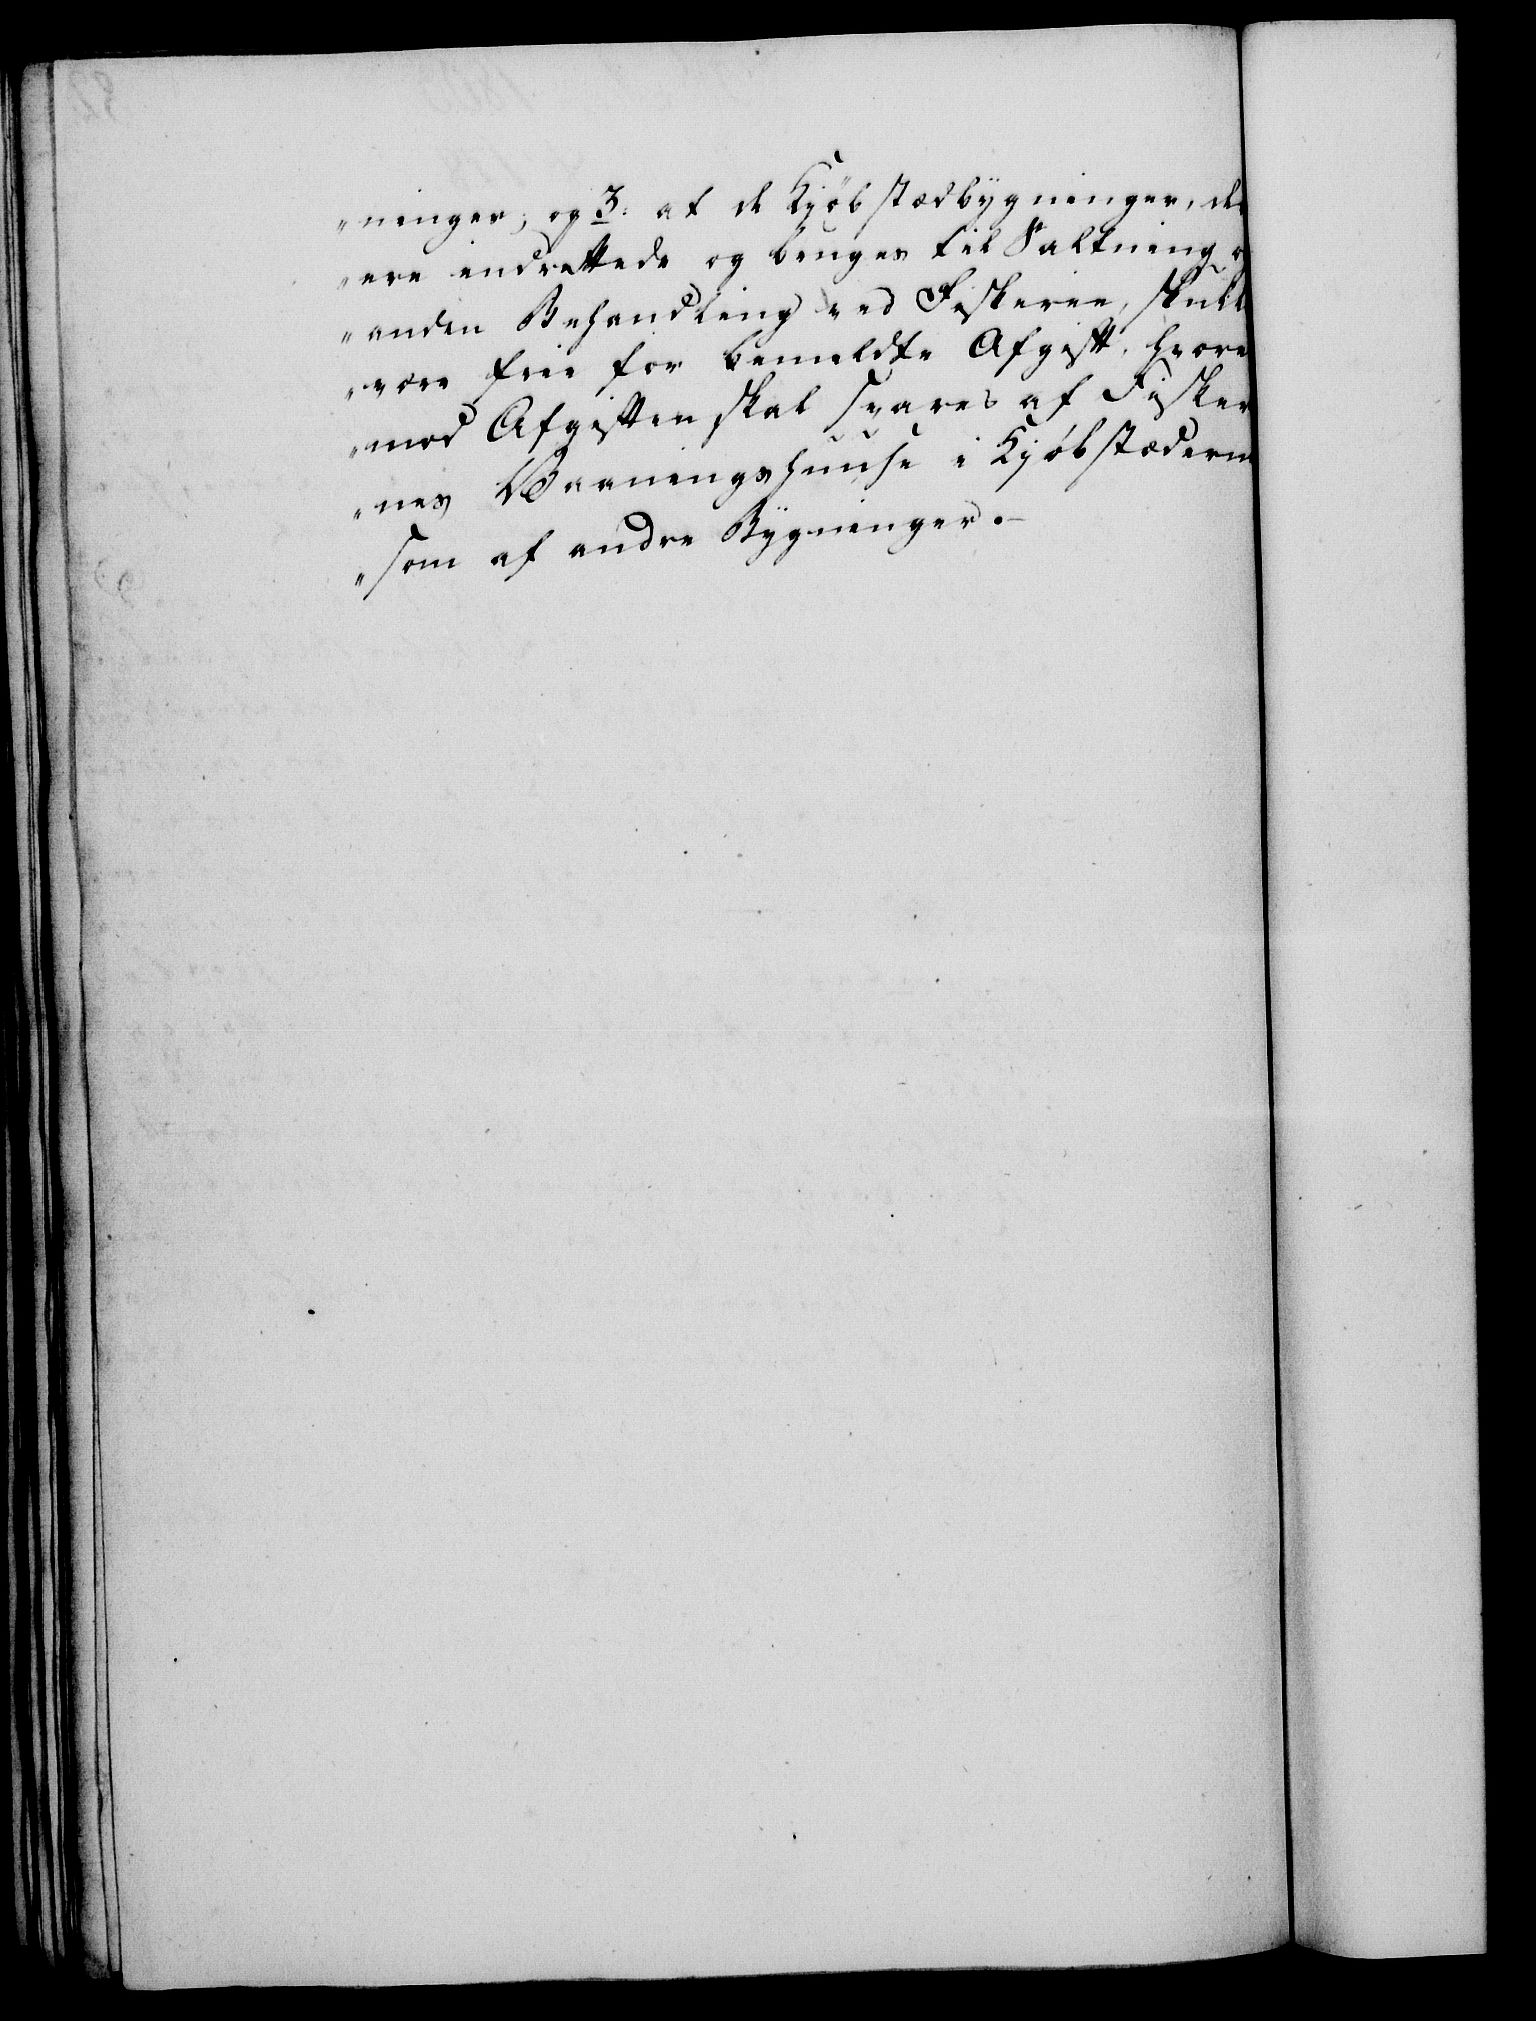 „ninger; og 3: at de Kjöbstædbygninger, de
„ere indrettede og bruges til Saltning og
„anden Behandling ved Fiskerie, skull
„være frie for bemeldte Afgift, hvore
„mod Afgiften skal svares af Fisker
„nes Vaaningshuuse i Kjöbstæderne
„som af andre Bygninger.-